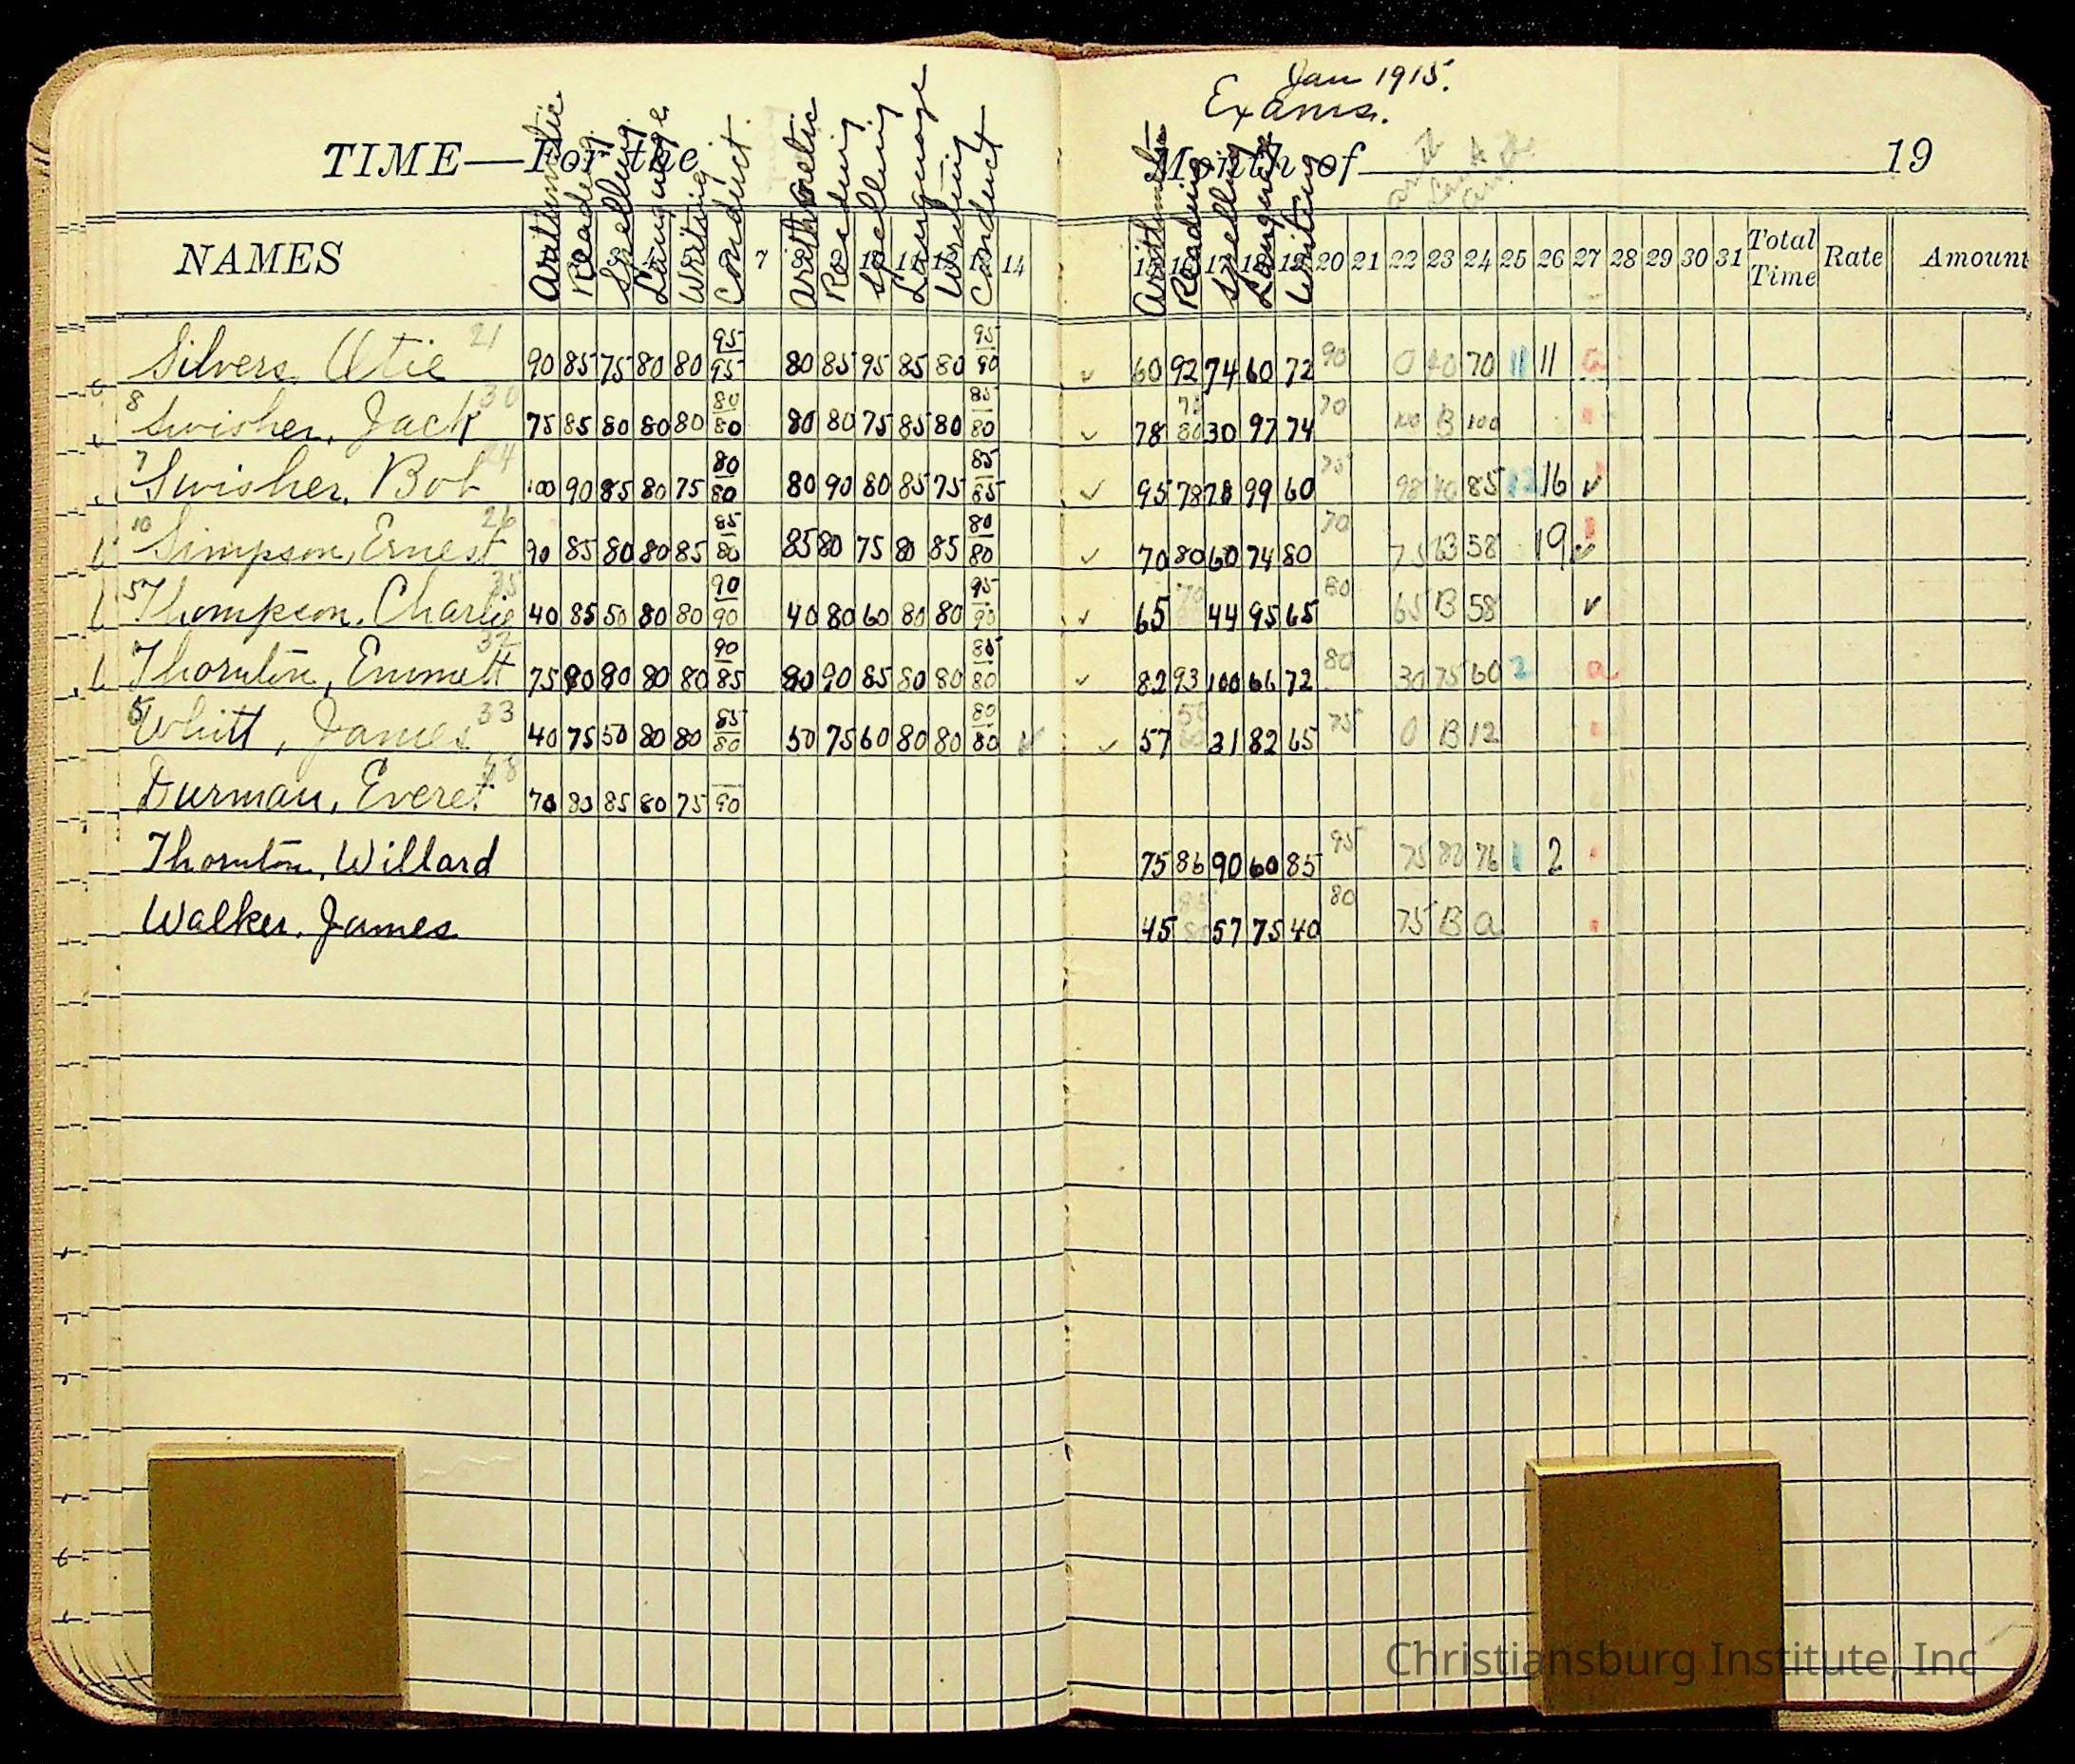 Jan 1915.
Exams.
TIME—For the Month of 19
NAMES Arithmetic Reading Spelling Language Writing Conduct 7 Arithmetic Reading Spelling Language Writing Conduct 14 Arithmetic Reading Spelling Language Writing 20 21 22 23 24 25 26 27 28 29 30 31 Total Time Rate Amount
Silvers, Otie 21 90 85 75 80 80 95 95 80 85 95 85 80 95 90 60 92 74 60 72 90 0 70 11 11
8 Swisher, Jack 30 75 85 80 80 80 80 80 80 80 75 85 80 85 80 78 30 97 74 70 100 B 100
7 Swisher, Bob 24 100 90 85 80 75 80 80 80 90 80 85 75 85 85 95 78 78 99 60 75 98 40 85 12 16
10 Simpson, Ernest 26 90 85 80 80 85 85 80 85 80 75 80 85 80 80 70 80 60 74 80 70 75 58 19
5 Thompson, Charlie 40 85 50 80 80 90 90 40 80 60 80 80 95 90 65 70 44 95 65 80 65 B 58
Thornton, Emmett 32 75 90 80 80 80 90 85 80 90 85 80 80 85 80 82 93 100 66 72 80 30 75 60 2 a
Whitt, James 33 40 75 50 80 80 85 80 50 75 60 80 80 80 80 57 50 60 31 82 65 75 0 B 12
Durman, Everet 70 80 85 80 75 90
Thornton, Willard 75 86 90 60 85 95 75 80 76 1 2
Walker, James 45 85 57 75 40 80 75 B a
Christiansburg Institute, Inc